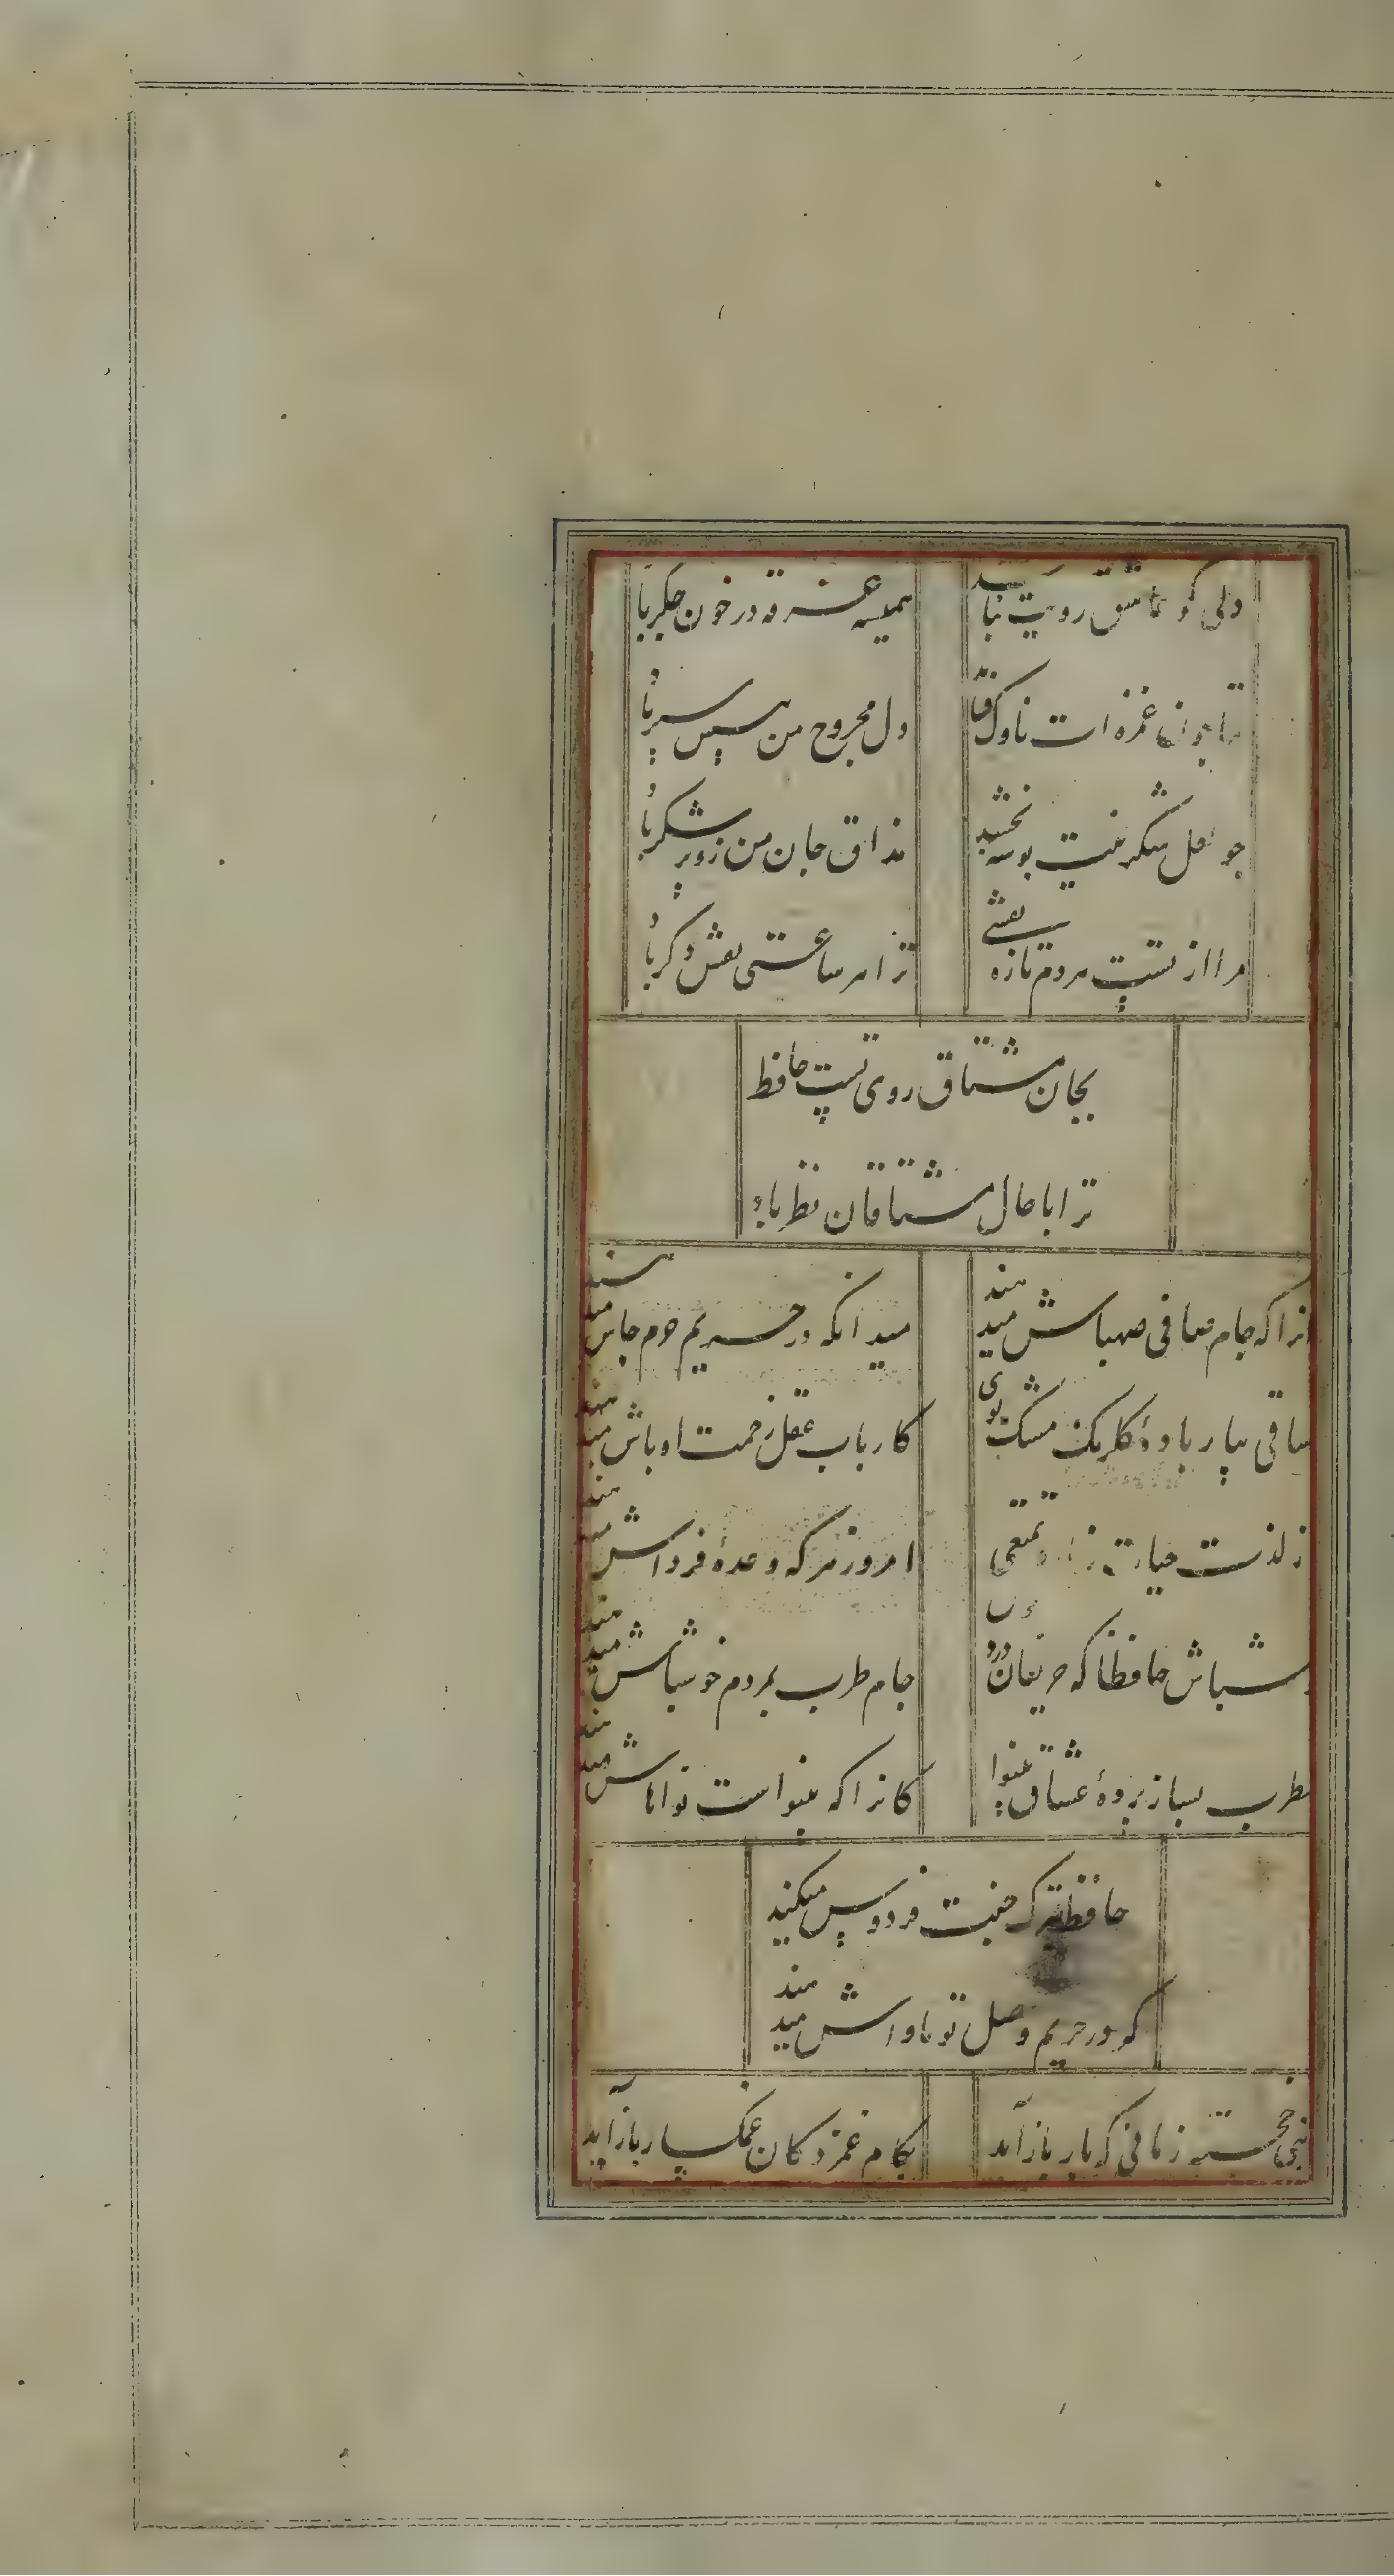 دلی کو عاشق رویت نباشد
همیشه غرقه در خون جگر باد
بتا چون غمزه ات ناوک فشاند
دل مجروح من پیشش سپر باد
چو لعل شکرینت بوسه بخشد
مذاق جان من زو پر شکر باد
مرا از تست هر دم تازه عشقی
ترا هر ساعتی حسن دگر باد
بجان مشتاق روی تست حافظ
ترا با حال مشتاقان نظر باد
انرا که جام صافی صهباش میدهند
میدانکه در حریم حرم جاش میدهند
ساقی بیار بادهٔ گلرنگ مشک بوی
کارباب عقل زحمت اوباش میدهند
ز لذت حیات تمتعی
امروز هر که وعدهٔ فرداش میدهند
خوشباش حافظا که حریفان درد نوش
جام طرب بمردم خوشباش میدهند
مطرب بساز پردهٔ عشاق بینوا
کانرا که بینواست نواهاش میدهند
حافظ ترک جنت فردوس میکند
که در حریم وصل تو ماواش میدهند
زهی خجسته زمانی که یار باز آید
بکام غمزدگان غمگسار باز آید